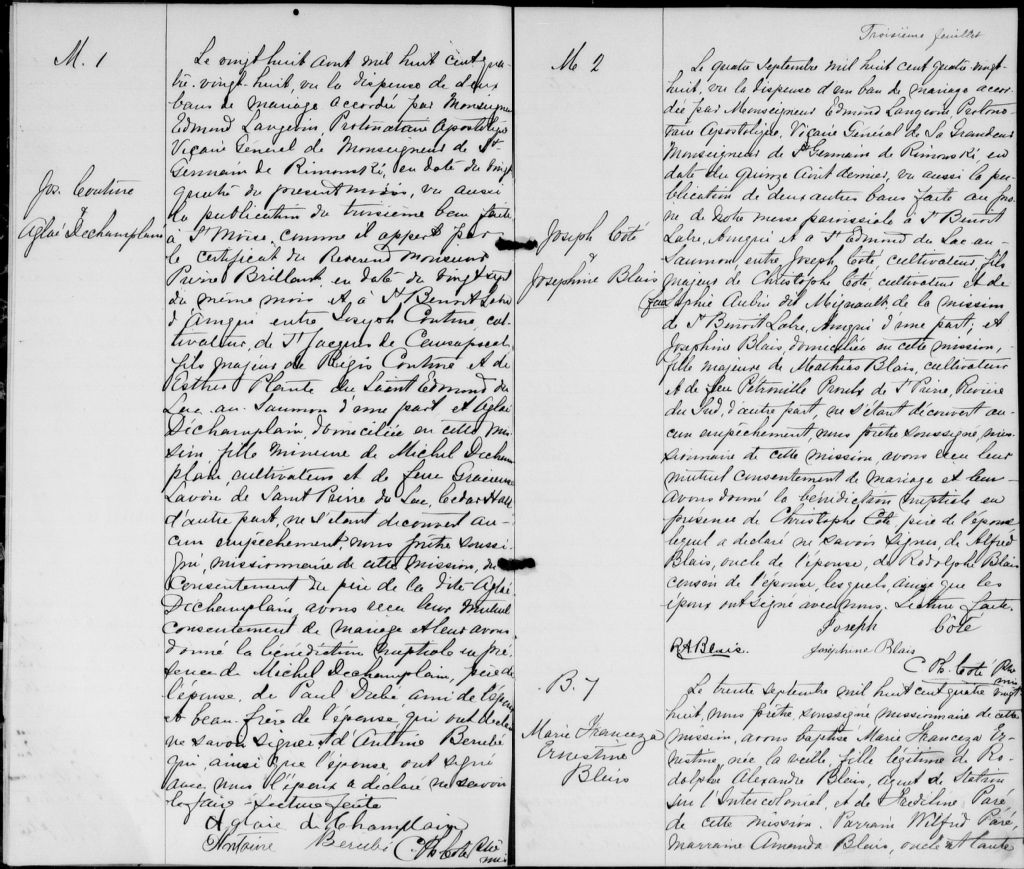 M. 1
Jos. Couture
&
Aglaé Dechamplain
Le vingt huit aout mil huit cent qua-
tre-vingt-huit, vu la dispense de deux
bans de mariage accordée par Monseigneur
Edmond Langevin, Protonotaire Apostolique
Vicaire General de Monseigneur de St
Germain de Rimouski, en date du vingt
quatre du present mois, vu aussi
la publication du troisième ban faite
à St Moise, comme il appert par
le certificat du Reverend Monsieur
Pierre Brillant, en date du vingt sept
du même mois et à St Benoit Labre
d'Amqui entre Joseph Couture, cul-
tivateur, de St Jacques de Causapscal,
fils majeur de Régis Couture et de
Esther Plante de Saint Edmond du
Lac-au-Saumon d'une part et Aglaé
Déchamplain, domiciliée en cette mis-
sion fille mineure de Michel Decham-
plain cultivateur et de feue Gracieuse
Lavoie de Saint Pierre du Lac, Cedar Hall
d'autre part, ne s'étant découvert au-
cun empêchement, nous prêtre soussi-
gné, missionnaire de cette mission, du
consentement du père de la dite Aglaé
Dechamplain, avons recu leur mutuel
consentement de mariage et leur avons
donné la bénédiction nuptiale en pré-
sence de Michel Dechamplain, père de
l'épouse, de Paul Dubé ami de l'époux
et beau-frère de l'épouse, qui ont déclaré
ne savoir signer et d'Antoine Berubé
qui, ainsi que l'épouse, ont signé
avec nous l'époux a déclaré ne savoir
le faire. Lecture faite
Aglaé de Champlain
Antoine Berubé C Ph. Coté Ptre
mis
Troisième feuillet
M 2
Joseph Coté
&
Josephine Blais
Le quatre Septembre mil huit cent quatre vingt-
huit, vu la dispense d'un ban de mariage accor-
dée par Monseigneur Edmond Langevin Protono-
taire Apostolique, Vicaire Général de Sa Grandeur
Monseigneur de St Germain de Rimouski, en
date du quinze Aout dernier, vu aussi la pu-
blication de deux autres bans faite au prô-
ne de notre messe paroissiale à St Benoit
Labre, Amqui et à St Edmond du Lac au-
Saumon entre Joseph Coté, cultivateur, fils
majeur de Christophe Coté, cultivateur et de
feue Sophie Aubin dit Mignault de la mission
de St Benoit Labre, Amqui d'une part; et
Josephine Blais, domiciliée en cette mission,
fille majeure de Mathias Blais, cultivateur
et de feu Petronille Proulx de St Pierre, Rivière
du Sud, d'autre part, ne s'étant découvert au-
cun empêchement, nous prêtre soussigné, mis-
sionnaire de cette mission, avons recu leur
mutuel consentement de mariage et leur
avons donné la bénédiction nuptiale en
présence de Christophe Coté, père de l'époux
lequel a déclaré ne savoir signer, de Alfred
Blais, oncle de l'épouse, de Rodolphe Blais
cousin de l'épouse, lesquels, ainsi que les
époux ont signé avec nous. Lecture faite.
Joseph Côté
R.A Blais. Joséphine Blais
C Ph. Coté Ptre
mis
B. 7
Marie Franceza
Ernestine
Blais
Le trente septembre mil huit cent quatre vingt
huit, nous prêtre, soussigné missionnaire de cette
mission, avons baptisé Marie Franceza Er-
nestine, née la veille, fille légitime de Ro-
dolphe Alexandre Blais, agent de Station
sur l'Intercolonial, et de Paré
de cette mission. Parrain Wilfrid Paré,
marraine Amanda Blais, oncle et tante